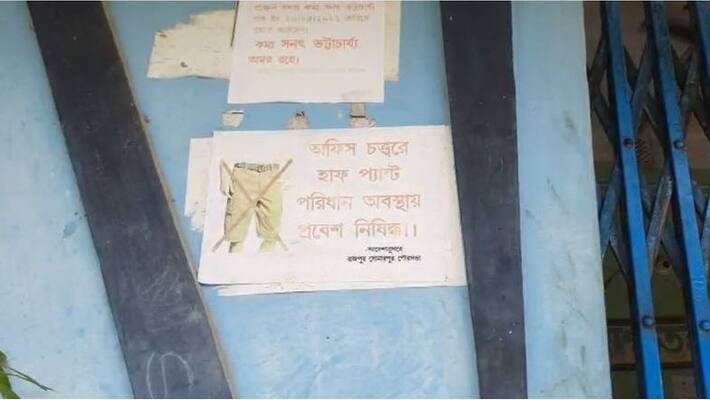 প্রাক্তন
গত ইং
কমঃ সনৎ ভট্টাচার্য্য
অমর রহে।
অফিস চত্ত্বরে
হাফ প্যান্ট
পরিধান অবস্থায়
প্রবেশ নিষিদ্ধ।।
আদেশানুসারে
রাজপুর সোনারপুর পৌরসভা